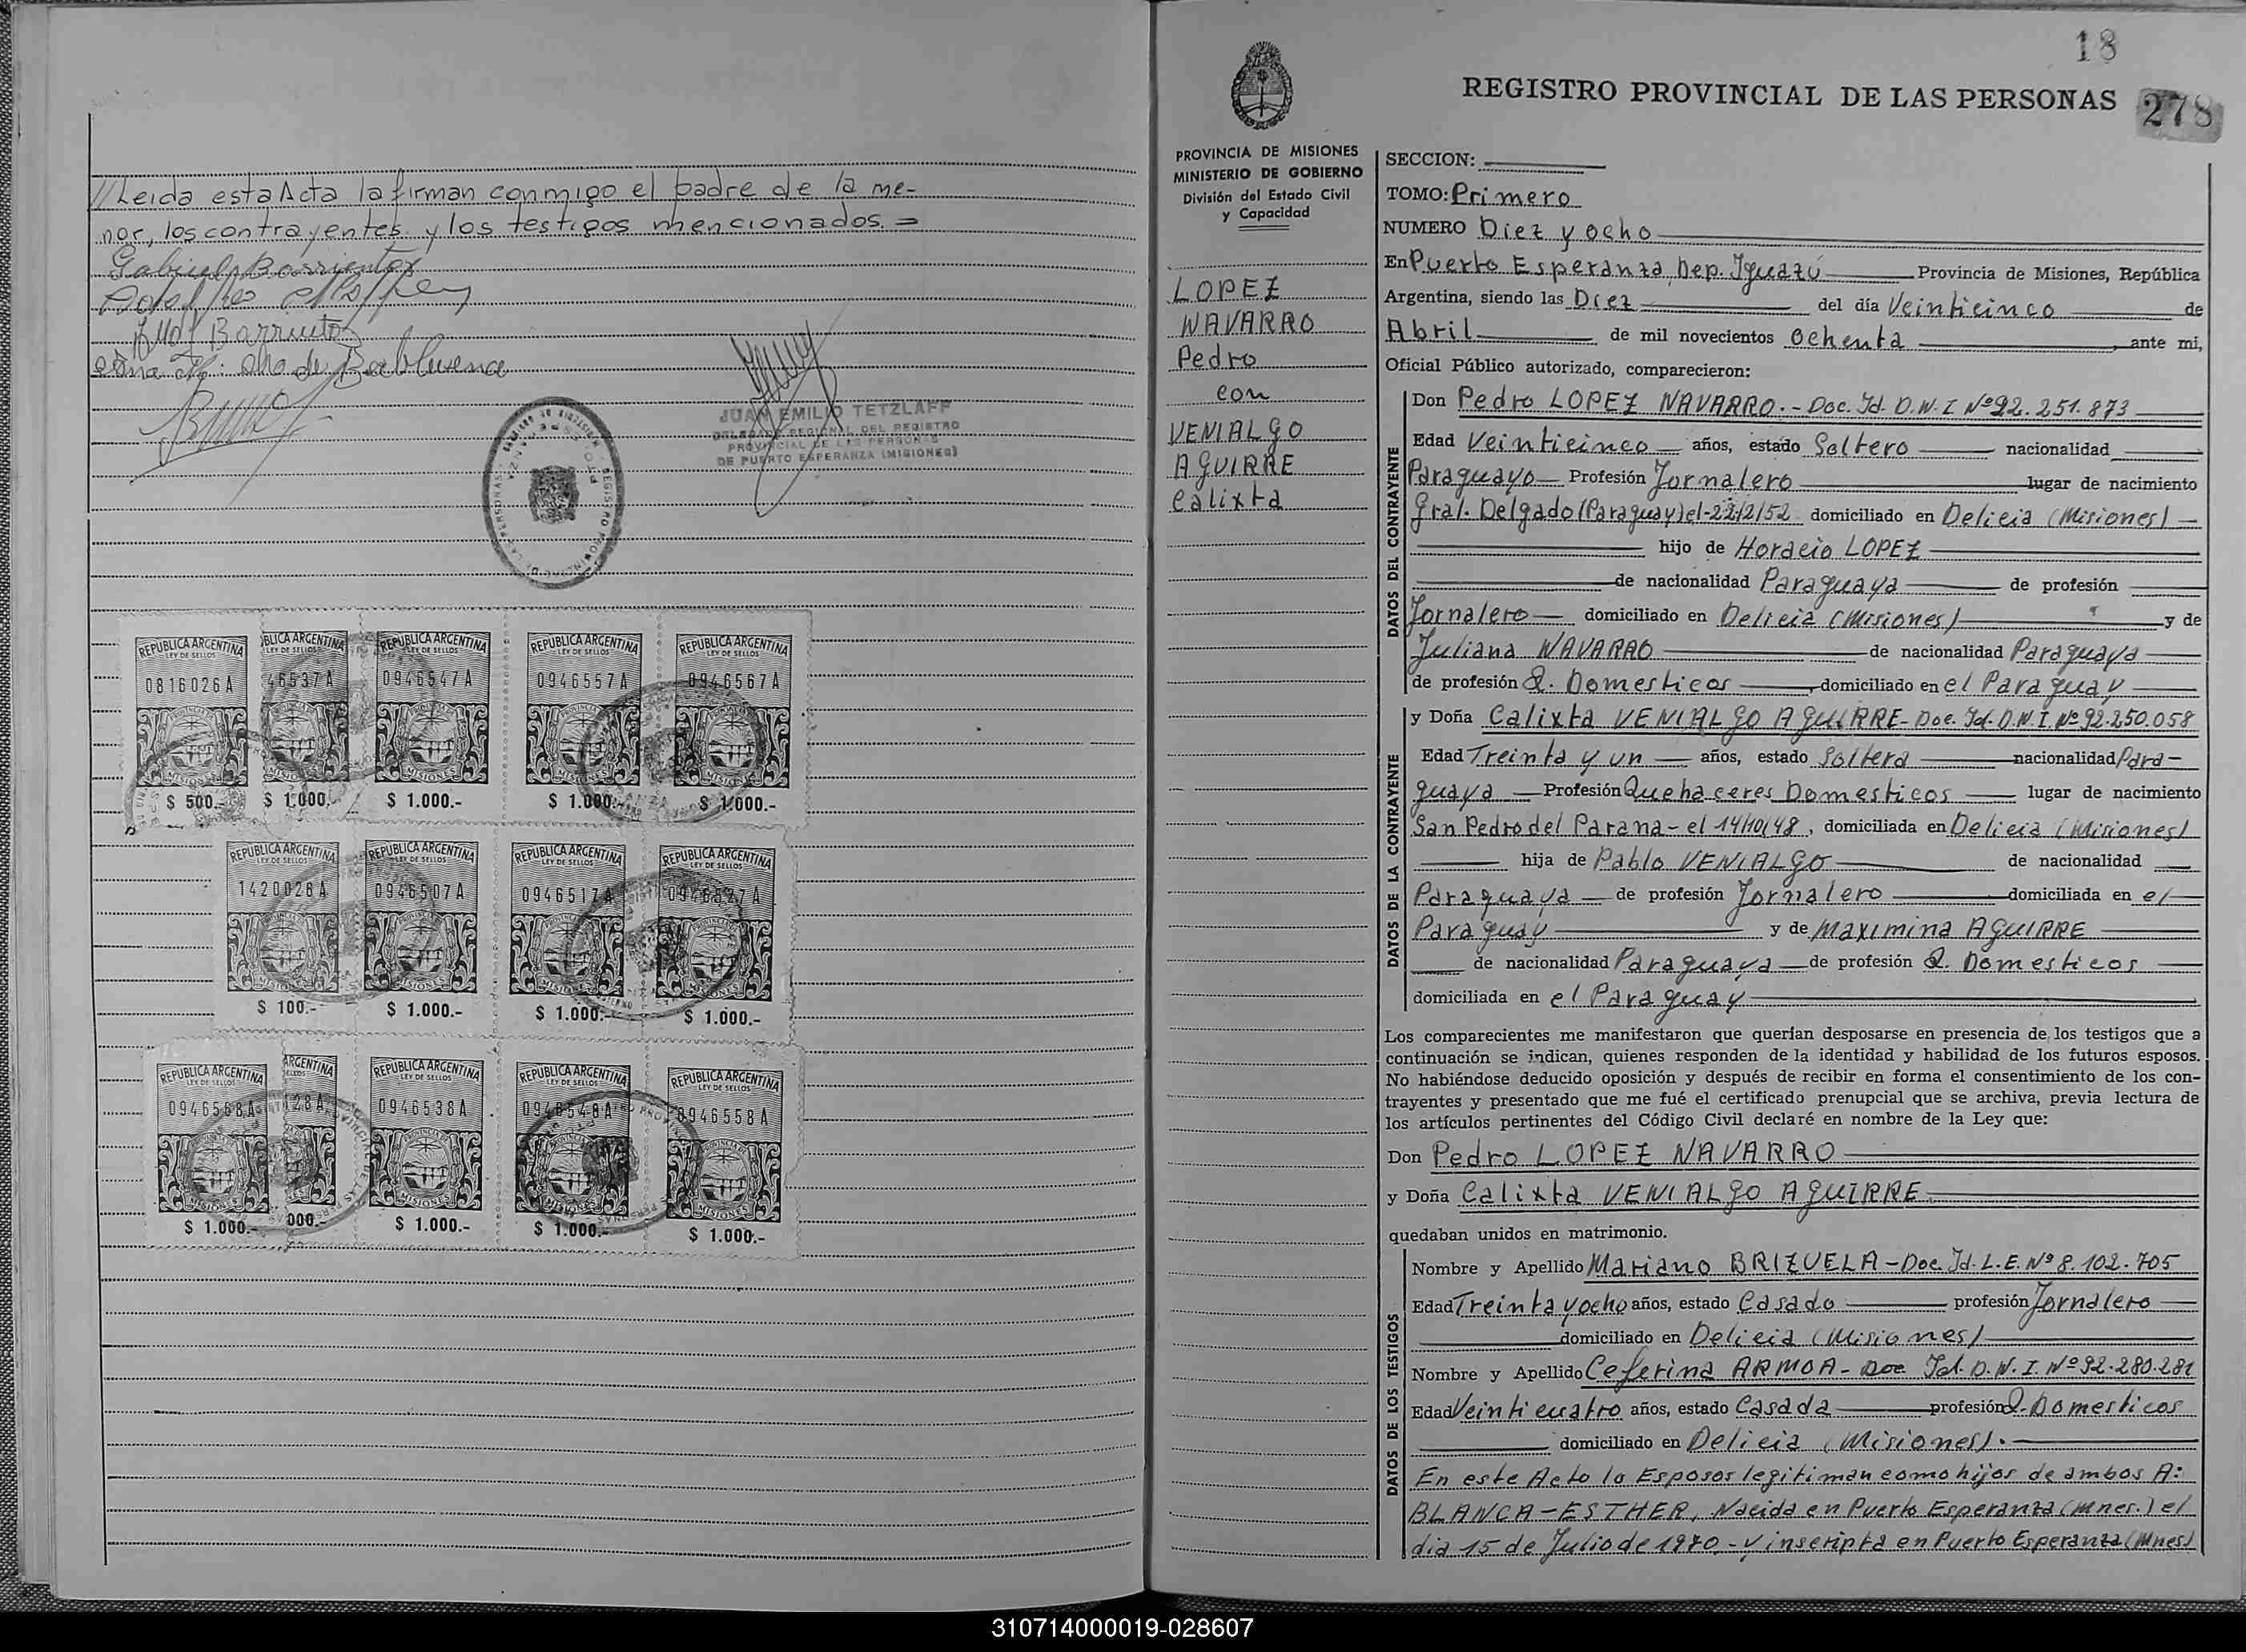 //Leida esta Acta la firman conmigo el padre de la me-
nor, los contrayentes y los testigos mencionados. =
Gabriel Barrientos
JUAN EMILIO TETZLAFF
DELEGADO REGIONAL DEL REGISTRO
PROVINCIAL DE LAS PERSONAS
DE PUERTO ESPERANZA (MISIONES)
REPUBLICA ARGENTINA
LEY DE SELLOS
0816026A
MISIONES
$ 500.-
BLICA ARGENTINA
LEY DE SELLOS
46537A
MISIONES
$ 1.000.-
REPUBLICA ARGENTINA
LEY DE SELLOS
0946547A
MISIONES
$ 1.000.-
REPUBLICA ARGENTINA
LEY DE SELLOS
0946557A
MISIONES
$ 1.000.-
REPUBLICA ARGENTINA
LEY DE SELLOS
0946567A
MISIONES
$ 1.000.-
REPUBLICA ARGENTINA
LEY DE SELLOS
1420028A
MISIONES
$ 100.-
REPUBLICA ARGENTINA
LEY DE SELLOS
0946507A
MISIONES
$ 1.000.-
REPUBLICA ARGENTINA
LEY DE SELLOS
0946517A
MISIONES
$ 1.000.-
REPUBLICA ARGENTINA
LEY DE SELLOS
0946527A
MISIONES
$ 1.000.-
REPUBLICA ARGENTINA
LEY DE SELLOS
0946568A
MISIONES
$ 1.000.-
ARGENTINA
SELLOS
28A
000.-
REPUBLICA ARGENTINA
LEY DE SELLOS
0946538A
MISIONES
$ 1.000.-
REPUBLICA ARGENTINA
LEY DE SELLOS
0946548A
MISIONES
$ 1.000.-
REPUBLICA ARGENTINA
LEY DE SELLOS
0946558A
MISIONES
$ 1.000.-
18
REGISTRO PROVINCIAL DE LAS PERSONAS
278
PROVINCIA DE MISIONES
MINISTERIO DE GOBIERNO
División del Estado Civil
y Capacidad
LOPEZ
NAVARRO
Pedro
con
VENIALGO
AGUIRRE
Calixta
SECCION:
TOMO: Primero
NUMERO Diez y ocho
En Puerto Esperanza, Dep. Iguazú Provincia de Misiones, República
Argentina, siendo las Diez del día Veinticinco de
Abril de mil novecientos Ochenta, ante mi,
Oficial Público autorizado, comparecieron:
DATOS DEL CONTRAYENTE
Don Pedro LOPEZ NAVARRO.- Doc. Id. D.N.I. Nº 92.251.873
Edad Veinticinco años, estado Soltero nacionalidad
Paraguayo Profesión Jornalero lugar de nacimiento
Gral. Delgado (Paraguay) el-22/2/52 domiciliado en Delicia (Misiones)
hijo de Horacio LOPEZ
de nacionalidad Paraguaya de profesión
Jornalero domiciliado en Delicia (Misiones) y de
Juliana NAVARRO de nacionalidad Paraguaya
de profesión Q. Domesticos, domiciliado en el Paraguay
DATOS DE LA CONTRAYENTE
y Doña Calixta VENIALGO AGUIRRE- Doc. Id. D.N.I. Nº 92.250.058
Edad Treinta y un años, estado Soltera nacionalidad Para-
guaya Profesión Quehaceres Domesticos lugar de nacimiento
San Pedro del Parana- el 14/10/48, domiciliada en Delicia (Misiones)
hija de Pablo VENIALGO de nacionalidad
Paraguaya de profesión Jornalero domiciliada en el
Paraguay y de Maximina AGUIRRE
de nacionalidad Paraguaya de profesión Q. Domesticos
domiciliada en el Paraguay
Los comparecientes me manifestaron que querían desposarse en presencia de los testigos que a
continuación se indican, quienes responden de la identidad y habilidad de los futuros esposos.
No habiéndose deducido oposición y después de recibir en forma el consentimiento de los con-
trayentes y presentado que me fué el certificado prenupcial que se archiva, previa lectura de
los artículos pertinentes del Código Civil declaré en nombre de la Ley que:
Don Pedro LOPEZ NAVARRO
y Doña Calixta VENIALGO AGUIRRE
quedaban unidos en matrimonio.
DATOS DE LOS TESTIGOS
Nombre y Apellido Mariano BRIZUELA-Doc. Id. L.E. Nº 8.102.705
Edad Treinta y ocho años, estado Casado profesión Jornalero
domiciliado en Delicia (Misiones)
Nombre y Apellido Ceferina ARMOA- Doc Id. D.N.I. Nº 92.280.281
Edad Veinticuatro años, estado Casada profesión Q. Domesticos
domiciliado en Delicia (Misiones).
En este Acto lo Esposos legitiman como hijos de ambos A:
BLANCA-ESTHER, Nacida en Puerto Esperanza (Mnes.) el
dia 15 de Julio de 1970.- y inscripta en Puerto Esperanza (Mnes)
310714000019-028607